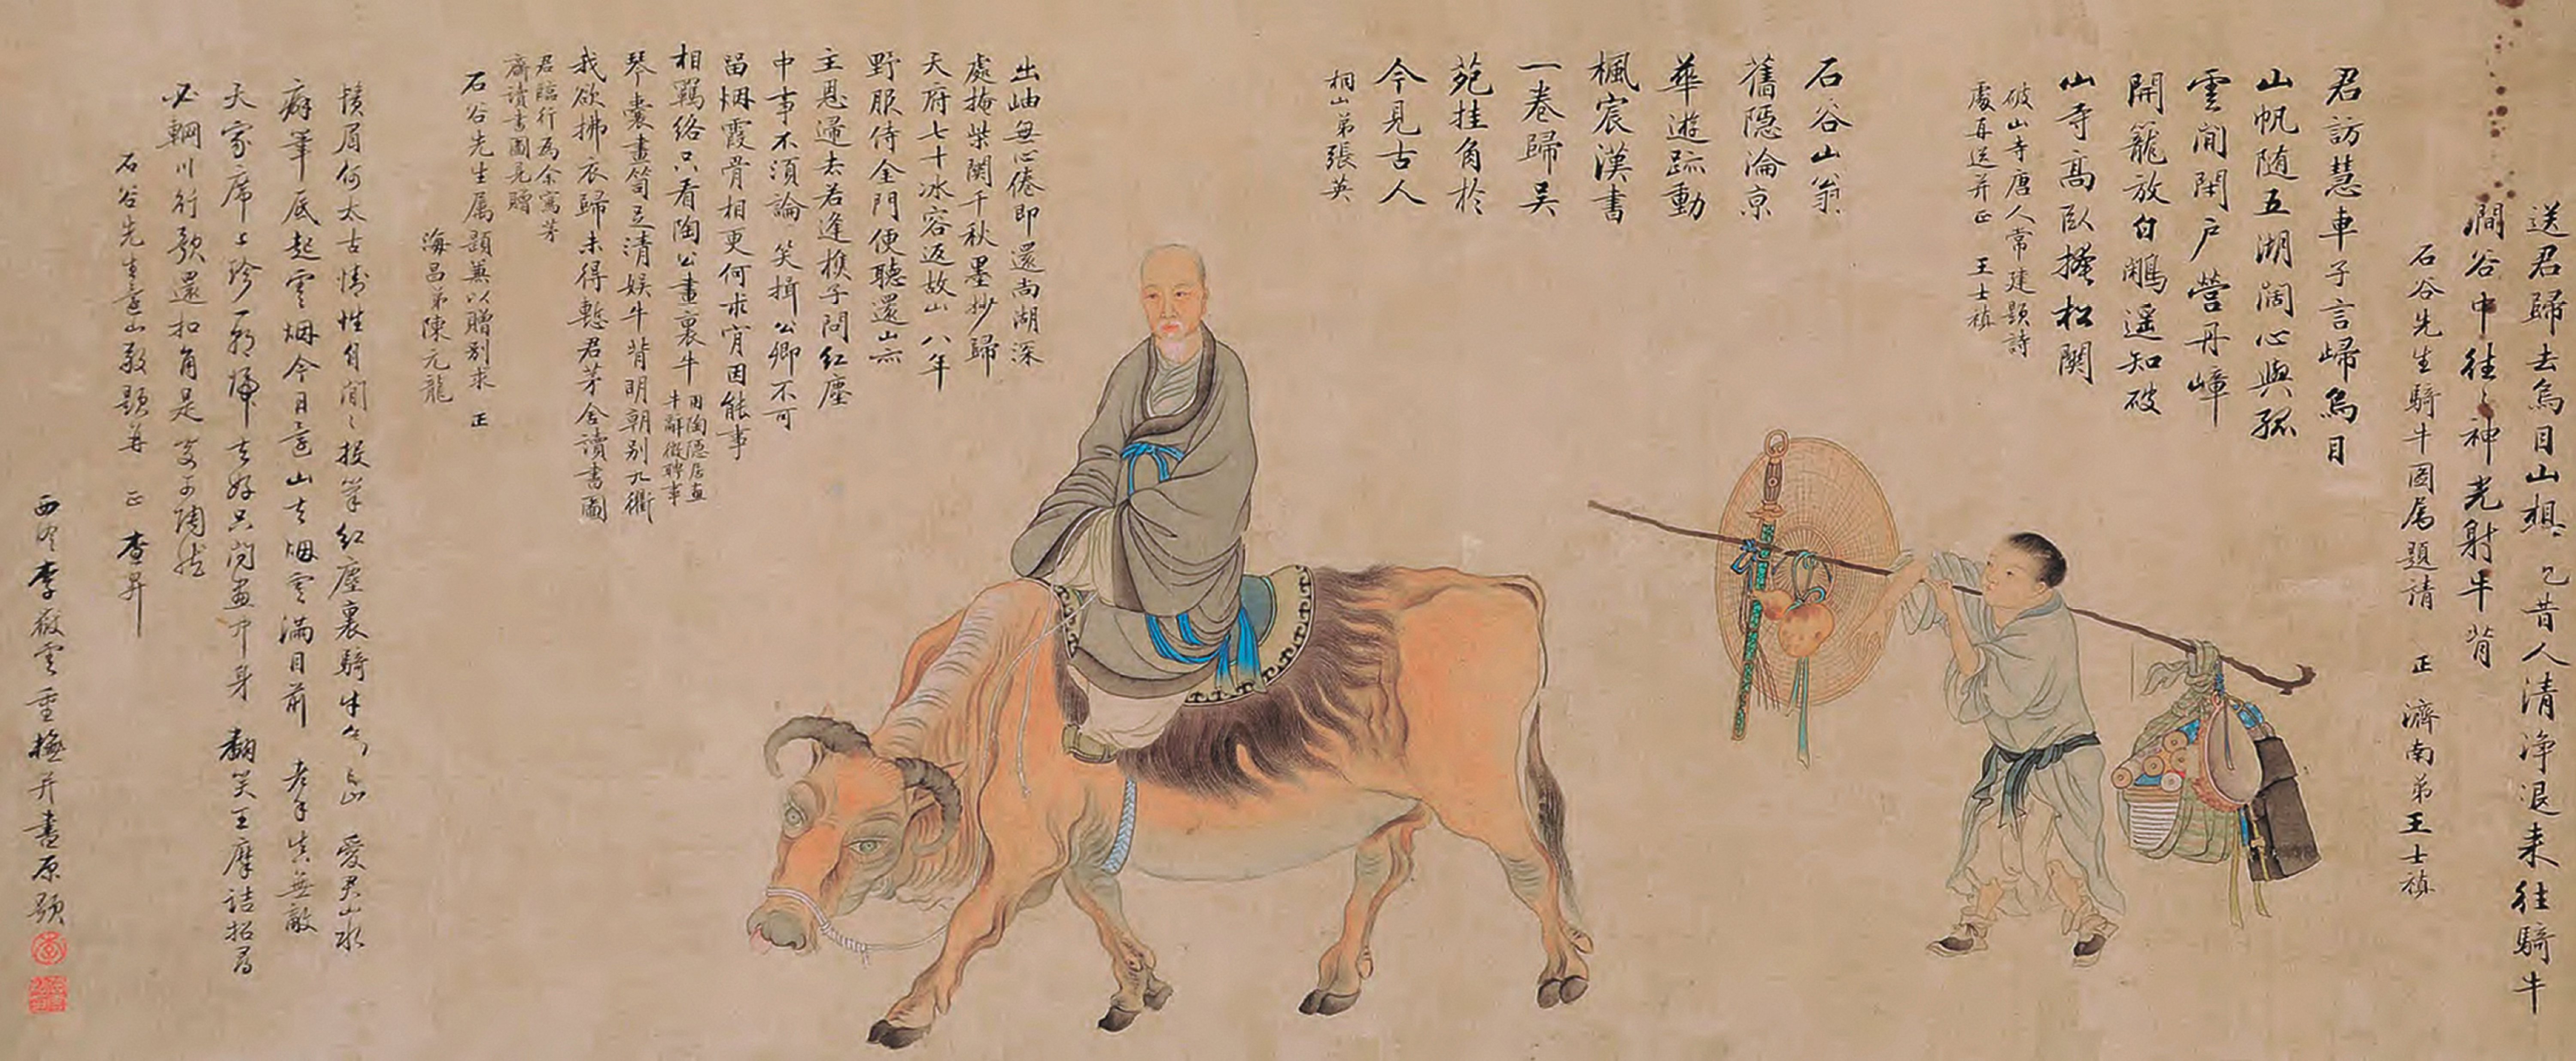 送君歸去烏目山想已昔人清淨退来往騎牛
澗谷中往〻神光射牛背
石谷先生騎牛圖属題請 正 濟南弟王士禎
君訪慧車子言歸烏目
山帆随五湖闊心與孤
雲閒閉户營丹嶂
開籠放白鷴遥知破
山寺高臥掩松関
破山寺唐人常建題詩
處再送并正 王士禎
石谷山翁
舊隱淪京
華遊跡動
楓宸漢書
一卷歸吴
苑挂角於
今見古人
桐山弟張英
出岫無心倦即還尚湖深
處掩柴関千秋墨抄歸
天府七十冰容返故山八年
野服侍金門便聽還山
主恩歸去若逢樵子問紅塵
中事不須論 笑揖公卿不可
留烟霞骨相更何求官因能事
相羈絡只看陶公畫裏牛
用陶隱居畫
牛辭徵聘事
琴囊畫笥足清娱牛背明朝别九衢
我欲拂衣歸未得慙君茅舍讀書圖
君臨行為余寫茅
齋讀書圖見贈
石谷先生属題兼以贈别求 正
海昌弟陳元龍
鬚眉何太古情性自閒〻投筆紅塵裏騎牛 愛君山水
癖筆底起雲烟今日還山去烟雲滿目前 老手真無敵
天家席上珍 歸去好只問畫中身 翻笑王摩詰招尋
必輞川行歌還扣角是
石谷先生還山敬題并 正 查昇
李 雲重橅并書原題